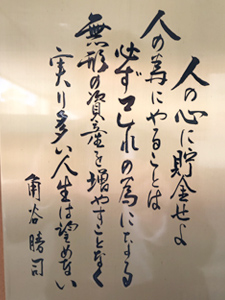 人の心に貯金せよ
人の為にやることは
必ず己れの為になする
無形の資産を増やすことなく
実り多い人生は望めない
角谷勝司